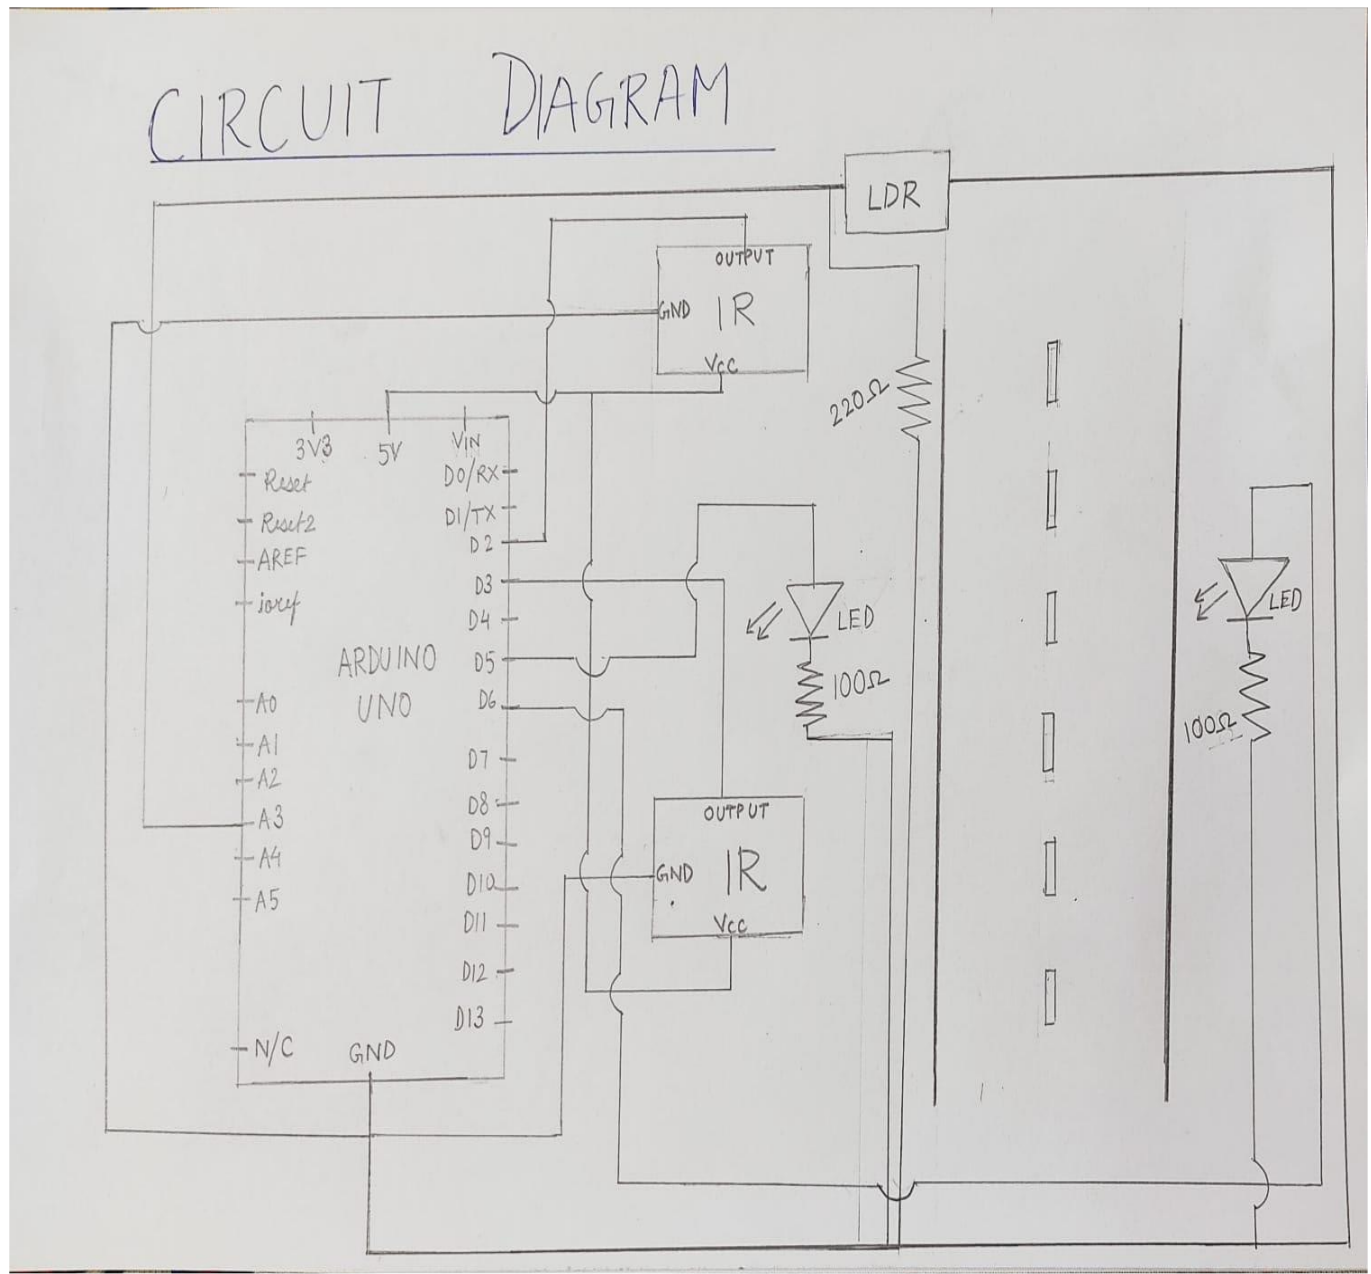 CIRCUIT DIAGRAM
LDR
OUTPUT
GND IR
Vcc
220Ω
3V3 5V VIN
Reset
Reset2
AREF
ioref
A0
A1
A2
A3
A4
A5
N/C
ARDUINO
UNO
GND
D0/RX
D1/TX
D2
D3
D4
D5
D6
D7
D8
D9
D10
D11
D12
D13
LED
100Ω
OUTPUT
GND IR
Vcc
LED
100Ω